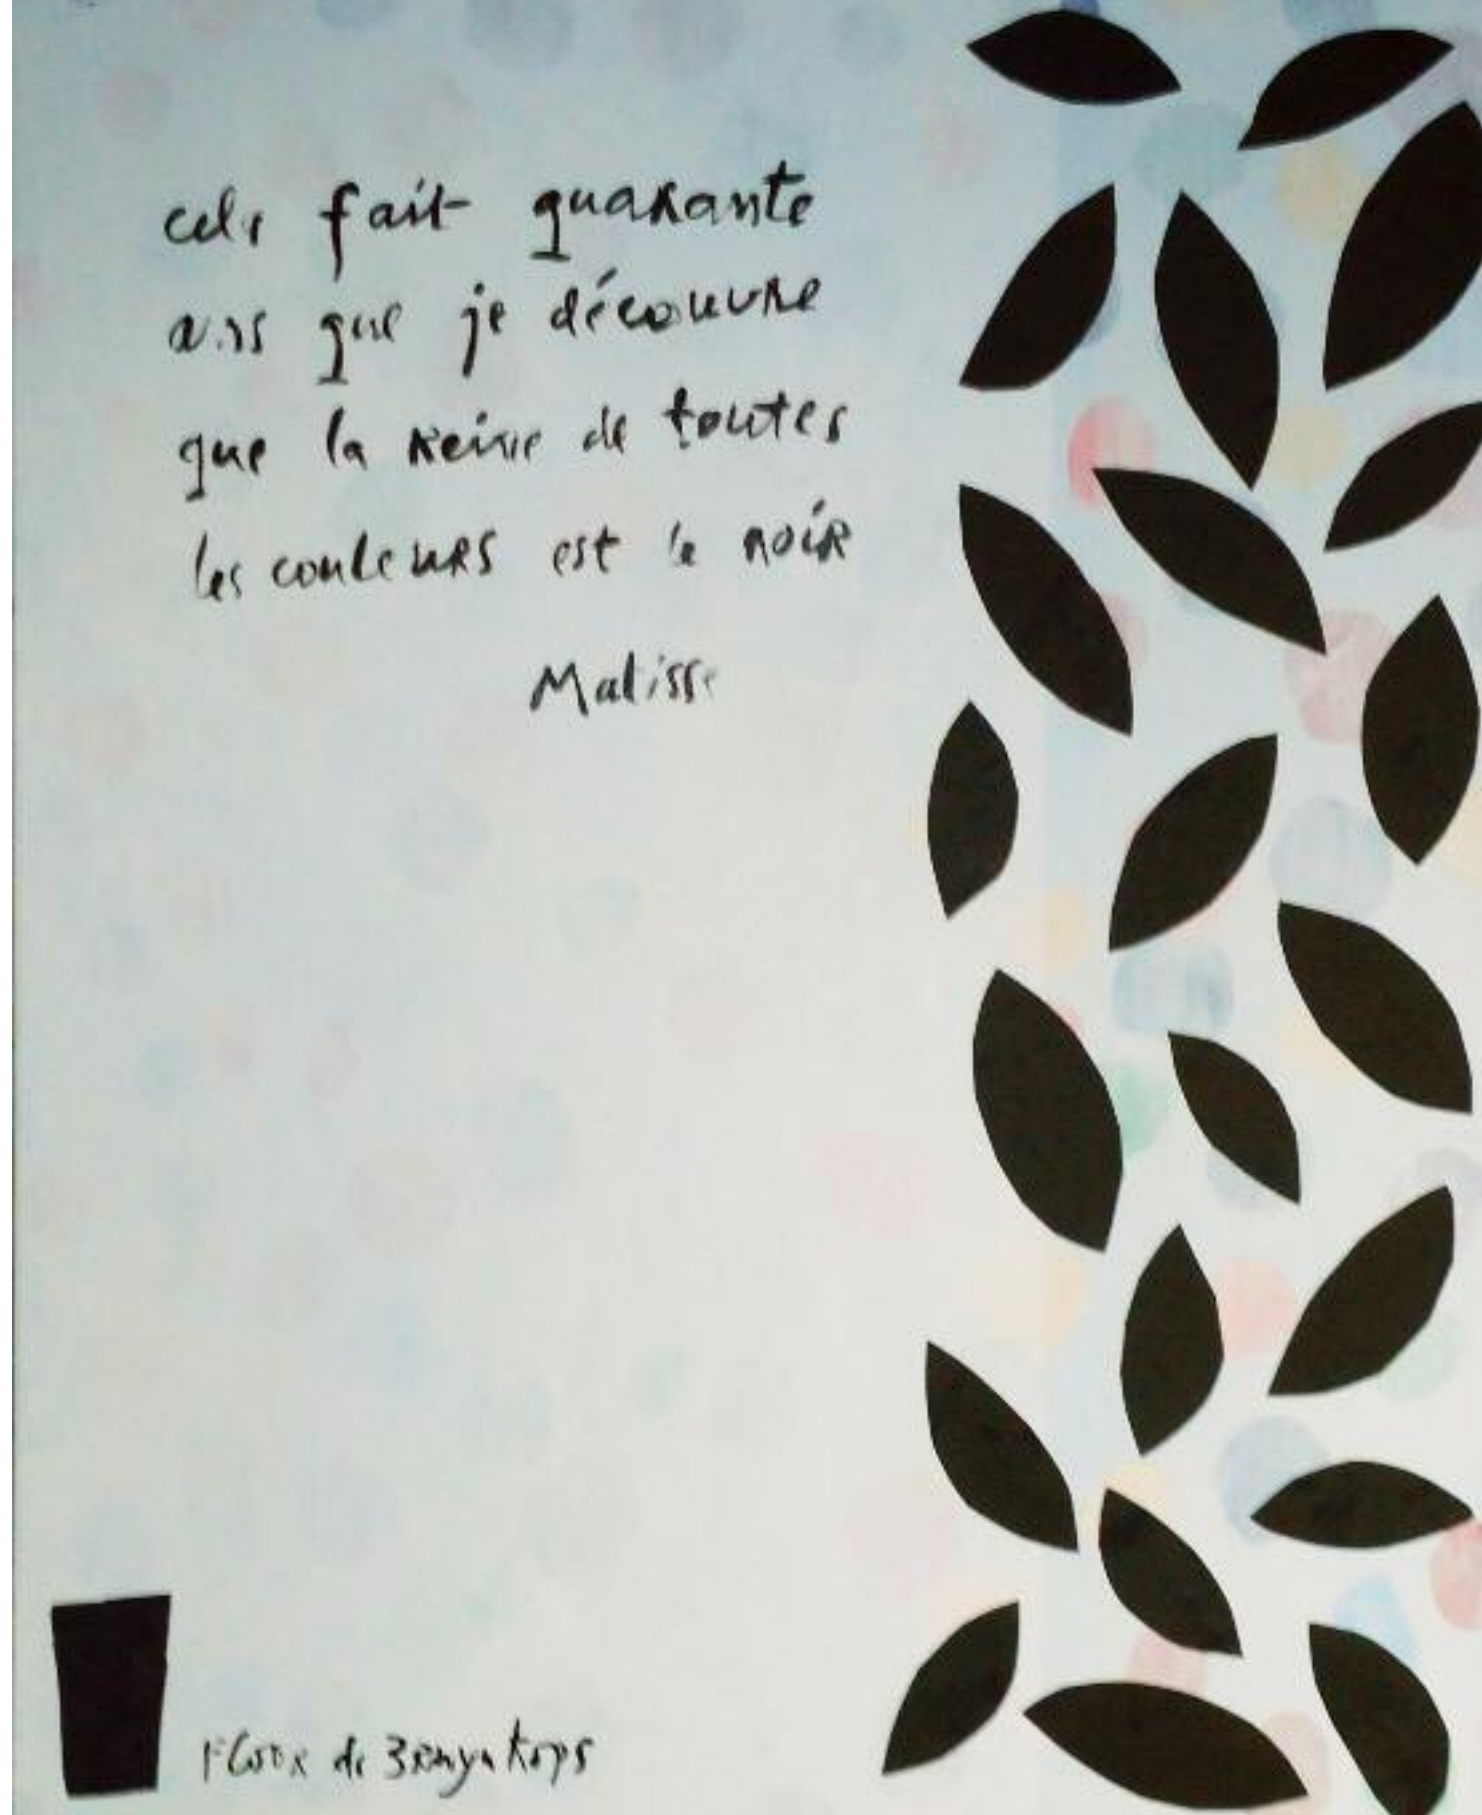 cela fait quarante
ans que je découvre
que la reine de toutes
les couleurs est le noir
Matisse
de